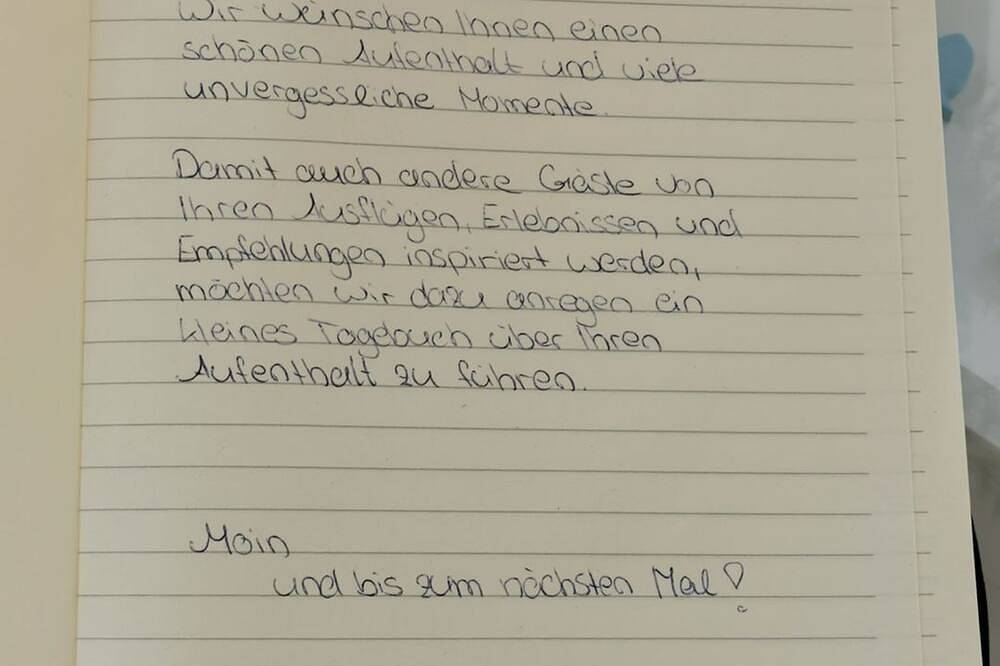 Wir wünschen Ihnen einen
schönen Aufenthalt und viele
unvergessliche Momente.
Damit auch andere Gäste von
Ihren Ausflügen, Erlebnissen und
Empfehlungen inspiriert werden,
möchten wir dazu anregen ein
kleines Tagebuch über Ihren
Aufenthalt zu führen.
Moin
und bis zum nächsten Mal!